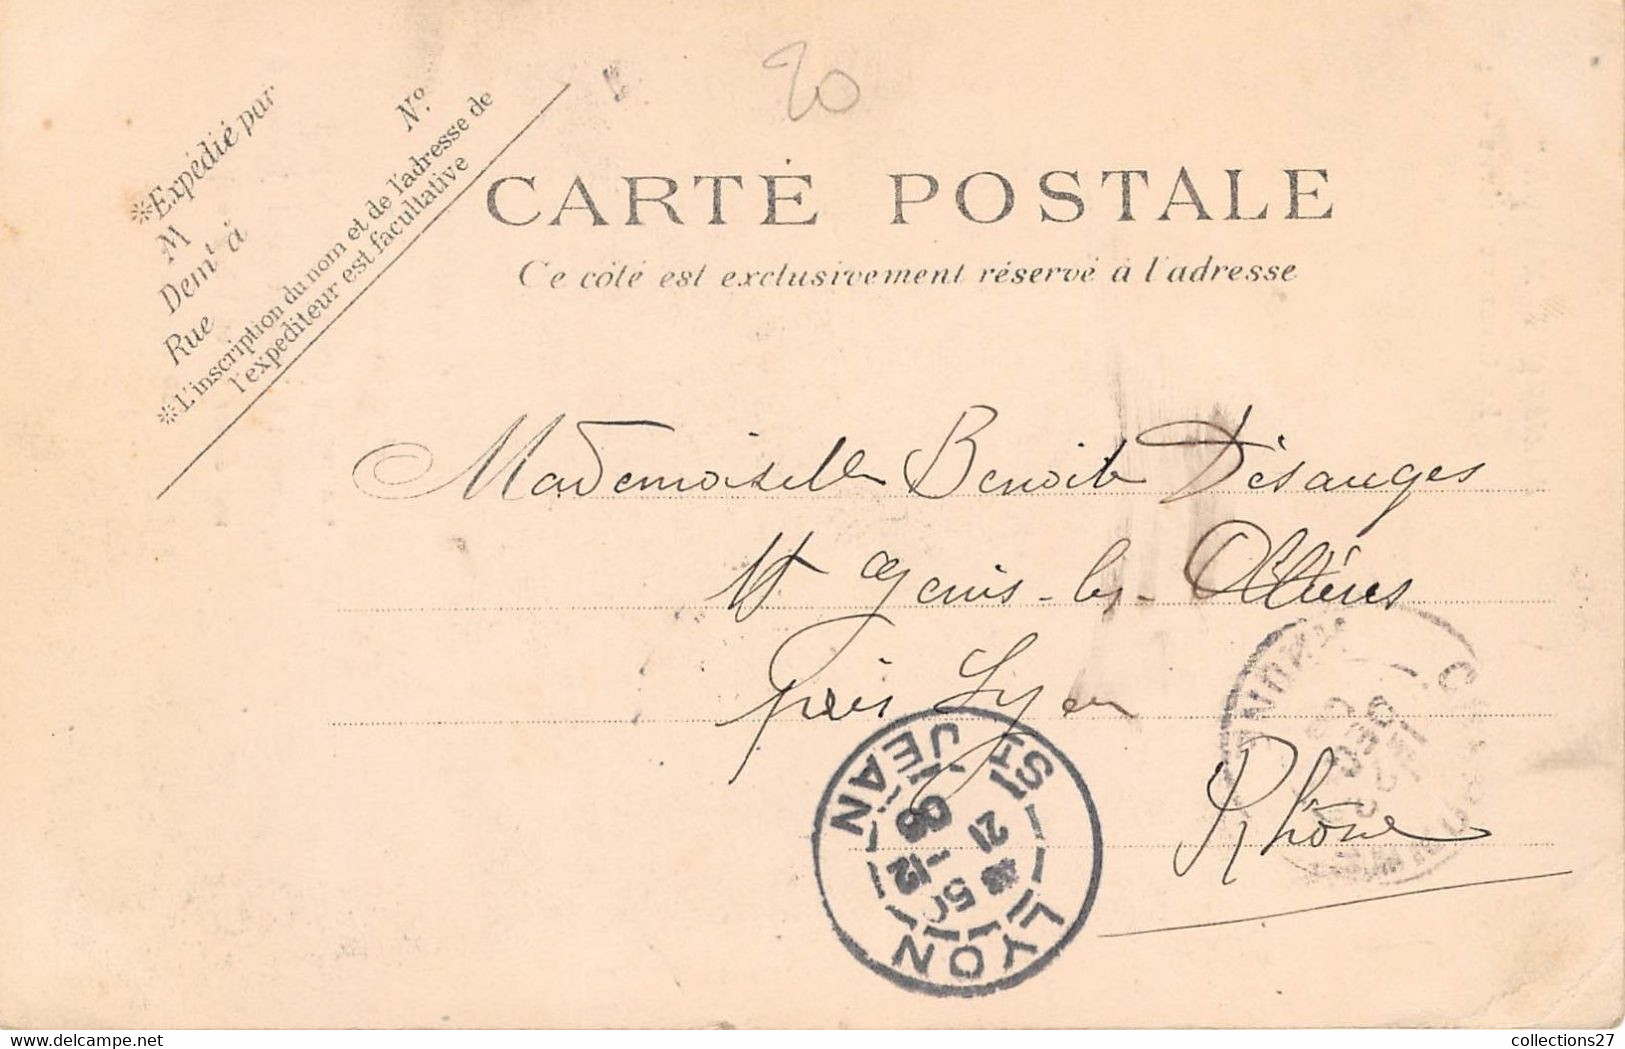 20
※Expédié par
M
Demt à
Rue
No.
※L'inscription du nom et de l'adresse de
l'expéditeur est facultative
CARTE POSTALE
Ce côté est exclusivement réservé à l'adresse
Mademoiselle Benoite Désanges
St Genis-les-Ollières
près Lyon
Rhône
LYON
ST JEAN
21
-12
03
collections27